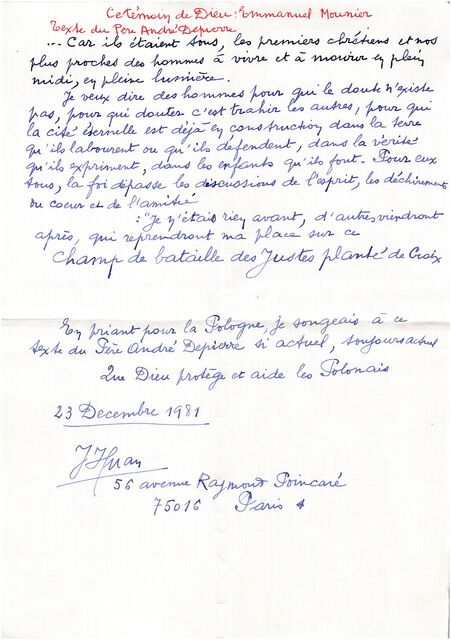 Ce témoin de Dieu: Emmanuel Mounier
Texte du Père André Depierre
... Car ils étaient tous, les premiers chrétiens et nos
plus proches des hommes à vivre et à mourir en plein
midi, en pleine lumière.
Je veux dire des hommes pour qui le doute n'existe
pas, pour qui douter c'est trahir les autres, pour qui
la cité éternelle est déjà en construction dans la terre
qu'ils labourent ou qu'ils défendent, dans la vérité
qu'ils expriment, dans les enfants qu'ils font. Pour eux
tous, la foi dépasse les discussions de l'esprit, les déchirements
du coeur et de l'amitié
: "Je n'étais rien avant, d'autres viendront
après, qui reprendront ma place sur ce
champ de bataille des Justes planté de Croix
En priant pour la Pologne, je songeais à ce
texte du Père André Depierre si actuel, toujours actuel
Que Dieu protège et aide les Polonais
23 Decembre 1981
56 avenue Raymond Poincaré
75016 Paris